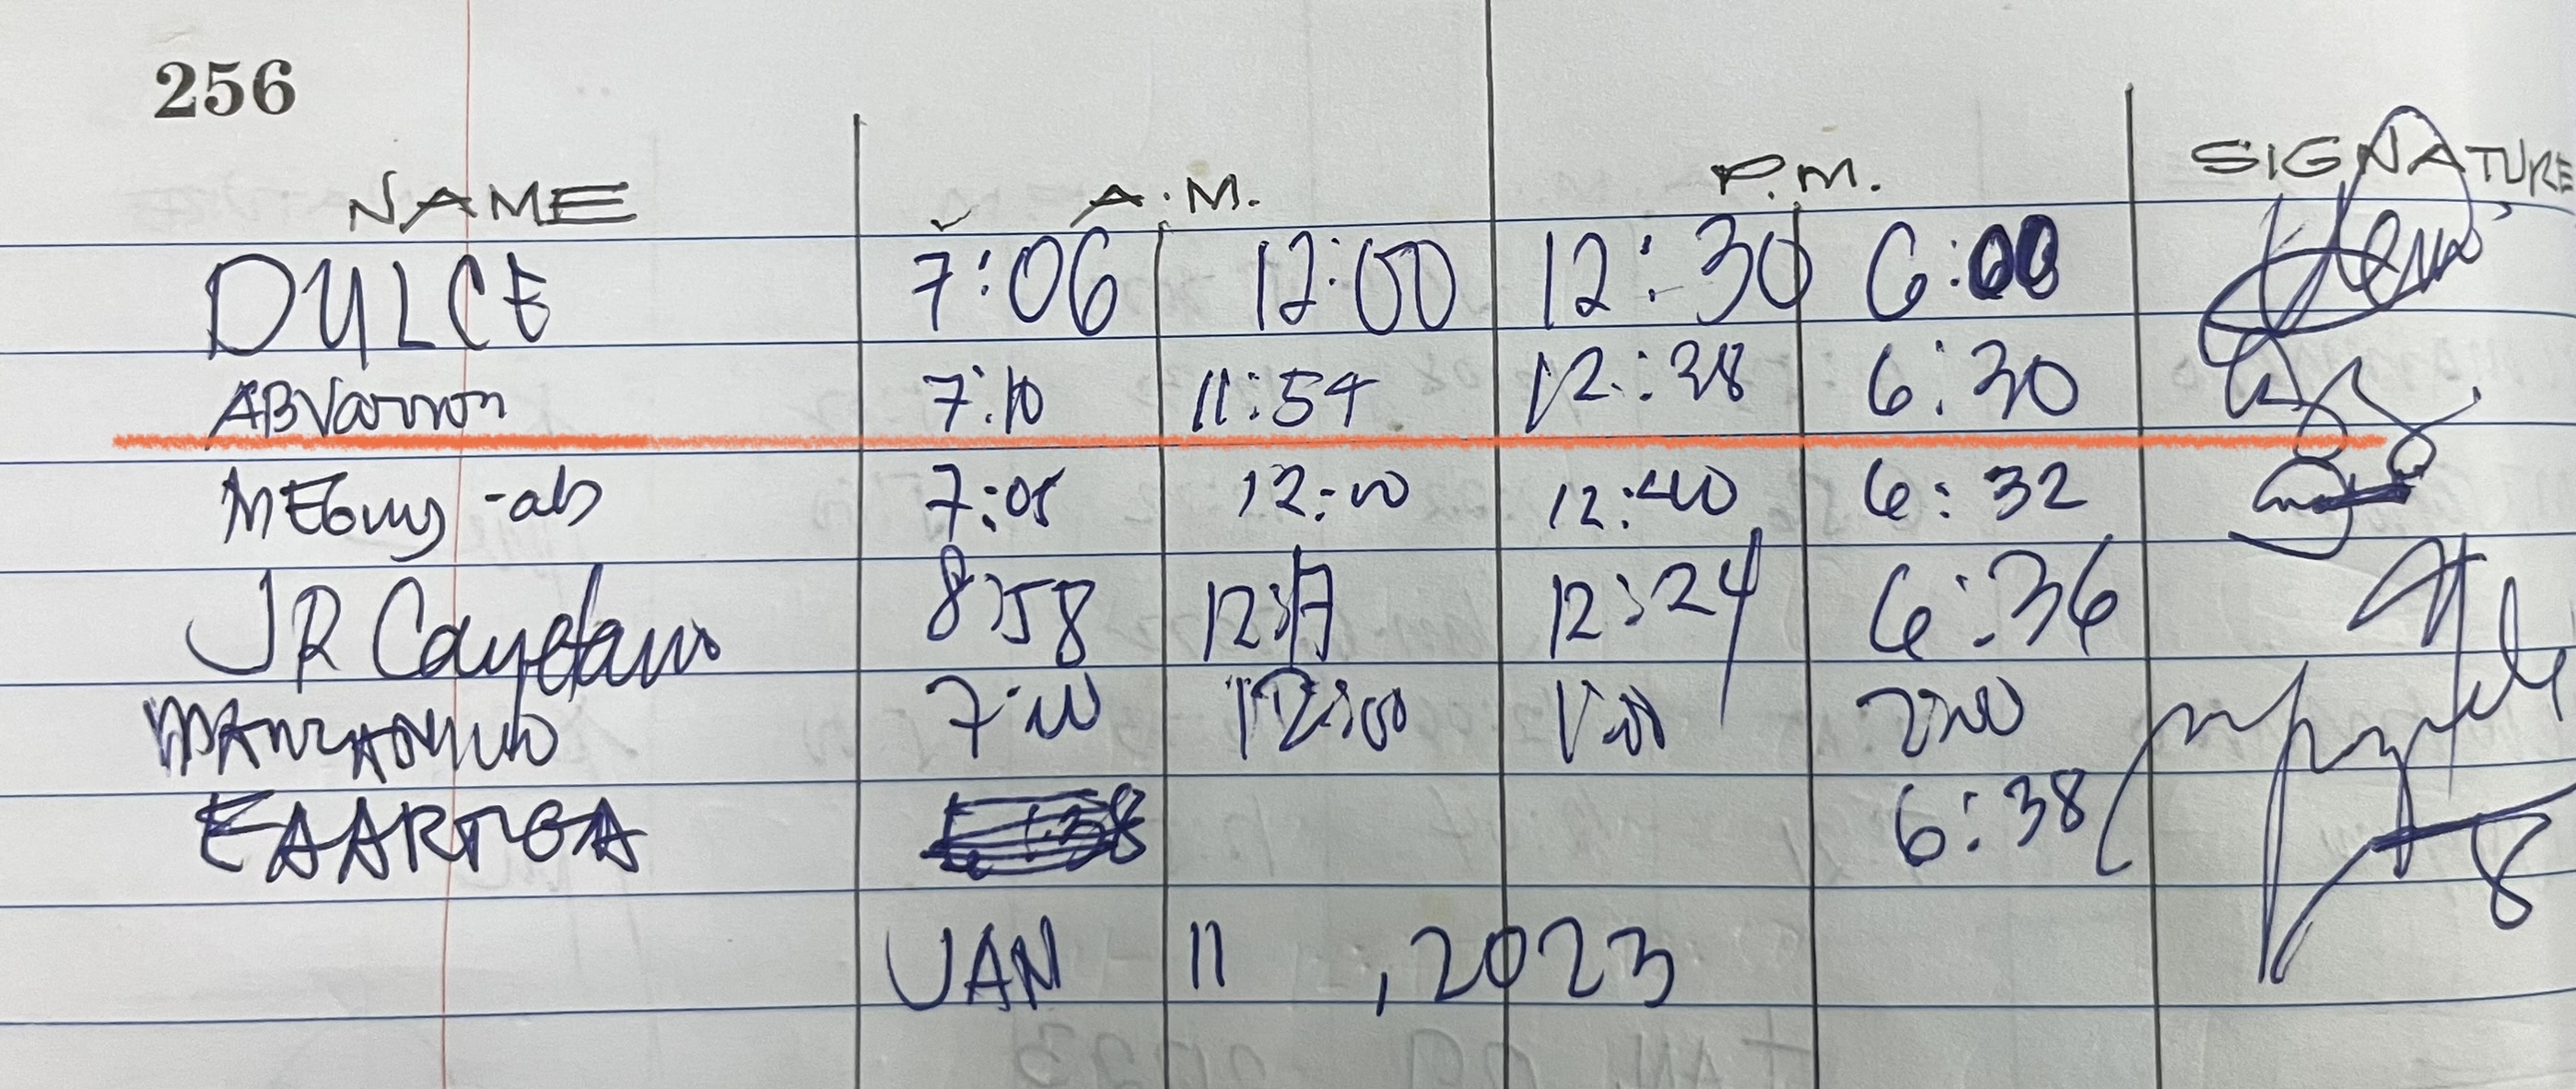 256
NAME A.M. P.M. SIGNATURE
DULCE 7:06 12:00 12:30 6:00
ABVarron 7:10 11:54 12:38 6:30
7:05 12:00 12:40 6:32
JR Cayetano 8:58 12:17 12:24 6:36
7:00 12:00 1:00
EAARTGA 6:38
JAN 11, 2023